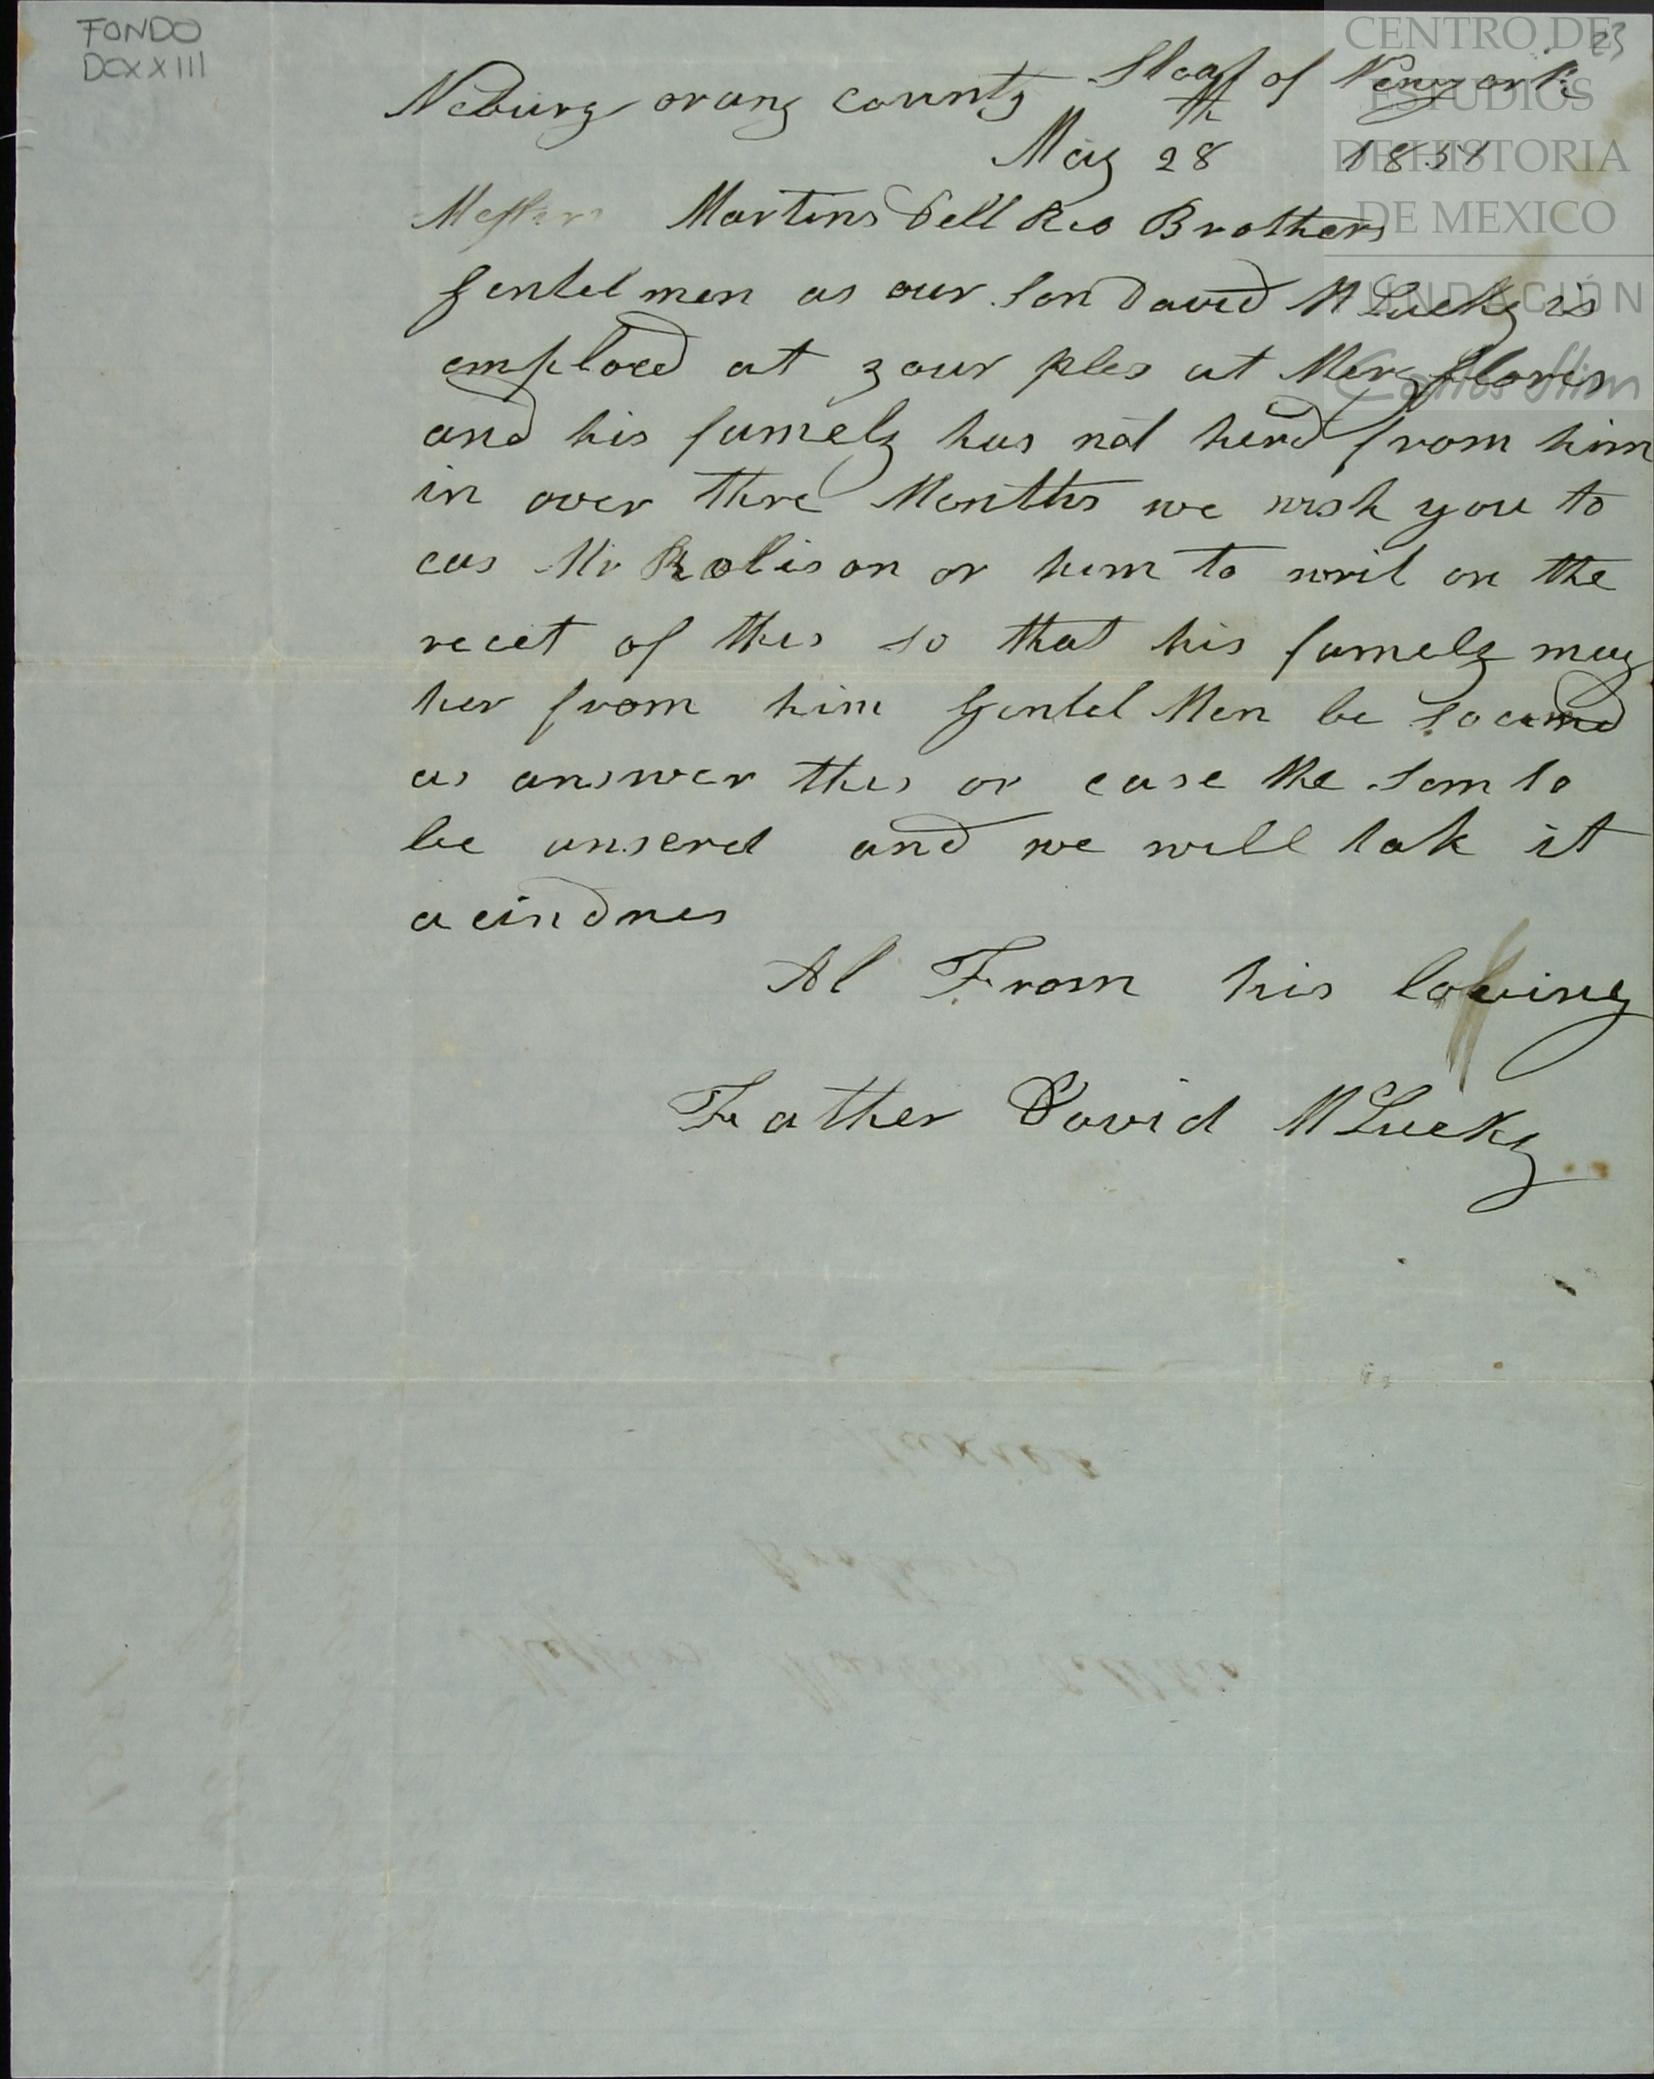 FONDO
DCXXIII
23
CENTRO DE
ESTUDIOS
DE HISTORIA
DE MEXICO
FUNDACIÓN
Carlos Slim
Neburg orang county Staat of Newyork
May 28th 1851
Messers Martins Dell Rio Brothers
Gentelmen as our son David MLucky is
emploed at your ples at Meryflores
and his famely has not herd from him
in over thre Months we wish you to
cas Mr Robison or him to writ on the
recet of this so that his famely may
her from him Gentel Men be so
as answer this or case the som to
be anserd and we will tak it
a cindnes
Al From his loving
Father David MLucky
Mexico
Brothers
Messers Martins Dell Rio